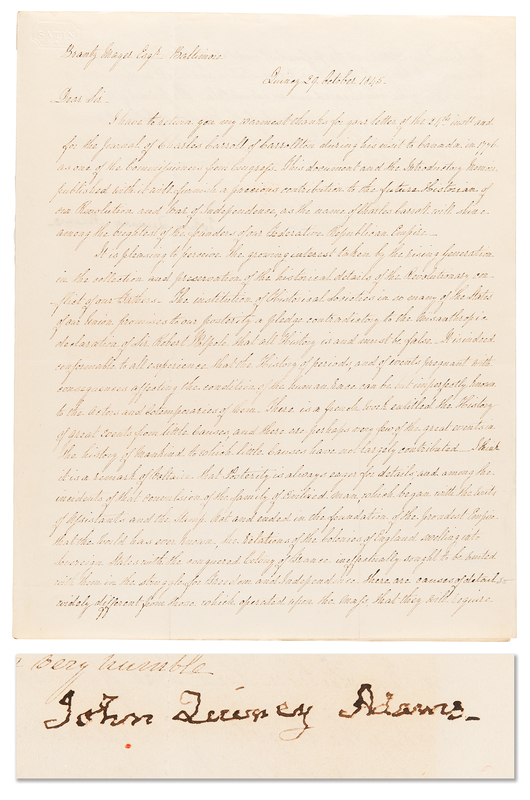 Brantz Mayer Esqr. Baltimore
Quincy 29. October 1845.
Dear Sir.
I have to return you my warmest thanks for your letter of the 24th instt. and
for the Journal of Charles Carroll of Carrollton during his visit to Canada, in 1776
as one of the Commissioners from Congress. This document and the Introductory Memoir
published with it will furnish a precious contribution to the future Historian of
our Revolution, and War of Independence, as the name of Charles Carroll will shine
among the brightest of the Founders of our Federative Republican Empire.
It is pleasing to perceive the growing interest taken by the rising generation
in the collection and preservation of the historical details of the Revolutionary con-
flict of our Fathers. The institution of Historical Societies in so many of the States
of our Union promises to our posterity a pledge contradictory to the misanthropic
declaration of Sir Robert Walpole that all History is and must be false. It is indeed
conformable to all experience that the History of periods, and of events pregnant with
consequences affecting the condition of the human race can be but imperfectly known
to the actors and contemporaries of them. There is a french work entitled the History
of great events from little Causes, and there are perhaps very few of the great events in
the history of Mankind to which little Causes have not largely contributed. I think
it is a remark of Voltaire that Posterity is always eager for details, and among the
incidents of that convulsion of the family of civilised man, which began with the Writs
of Assistants and the Stamp Act and ended in the foundation of the Grandest Empire
that the World has ever known, the relations of the Colonies of England swelling into
Sovereign States with the conquered Colony of France ineffectually sought to be united
with them in the struggle for Freedom and Independence. There are causes of detail so
widely different from those which operated upon the mass, that they will require
very humble
John Quincy Adams.